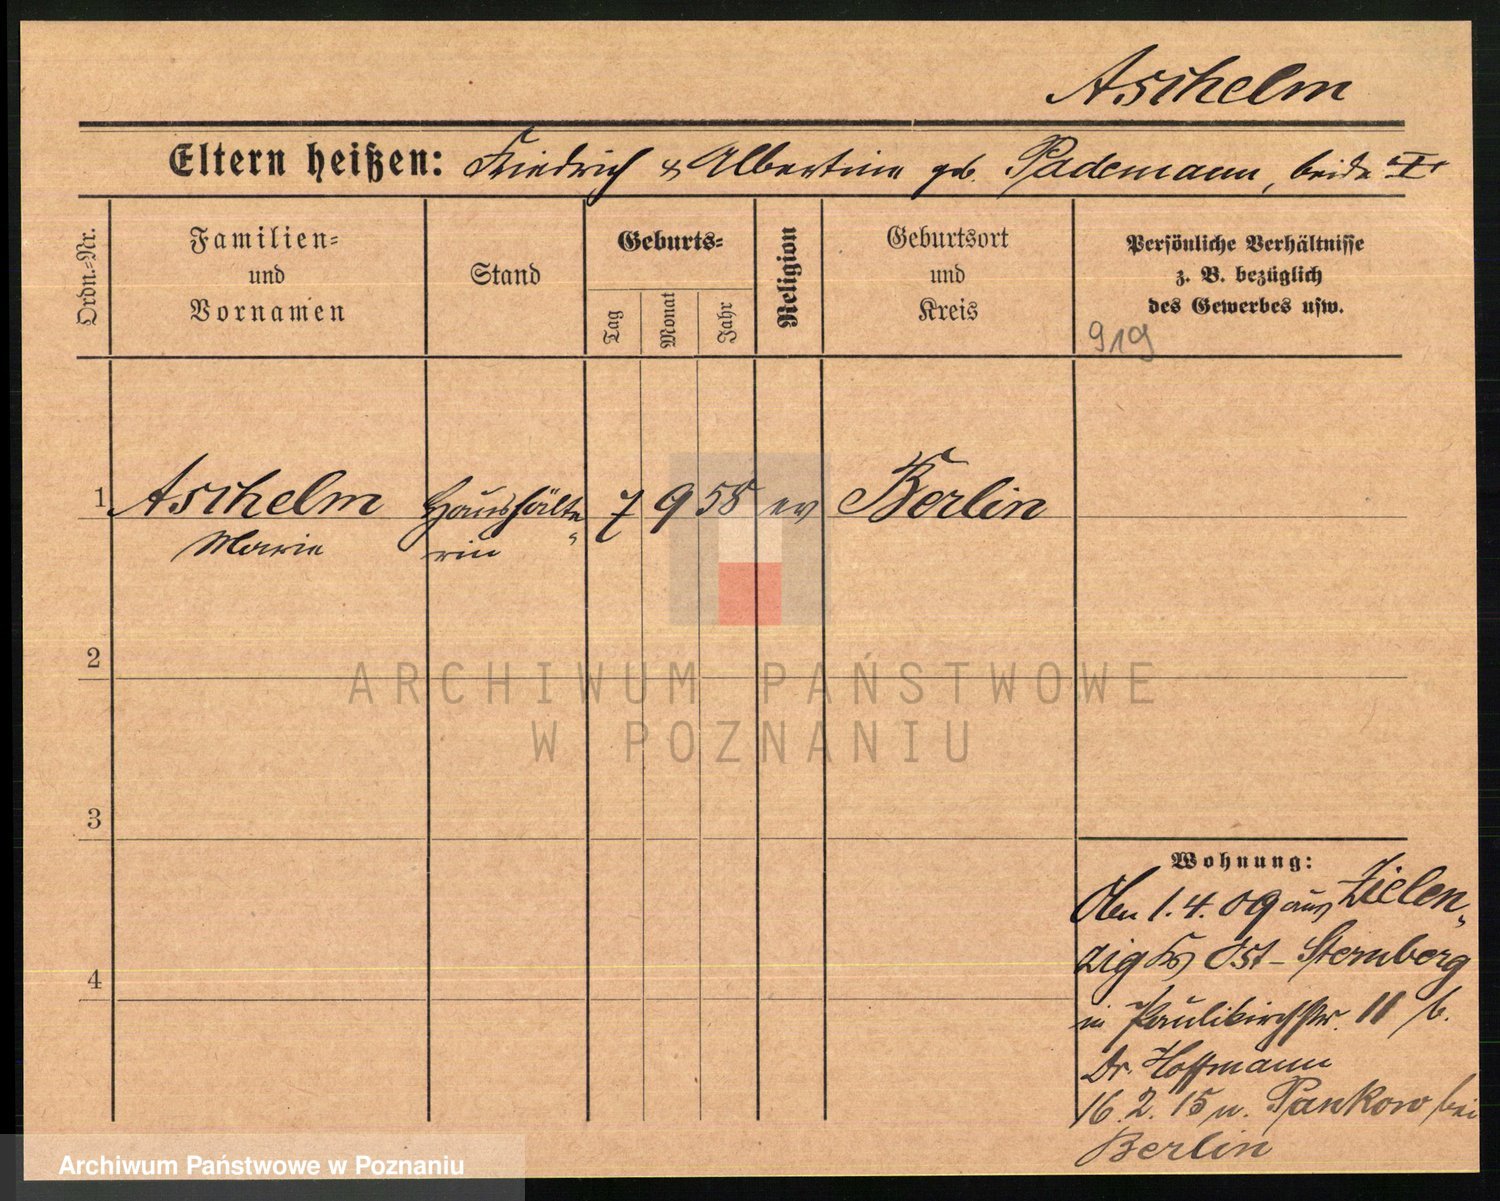 Aschelm
Eltern heißen: Friedrich & Albertine geb. Pademann, beide †
Ordn.-Nr.
Familien-
und
Vornamen
Stand
Geburts-
Tag
Monat
Jahr
Religion
Geburtsort
und
Kreis
Persönliche Verhältnisse
z. B. bezüglich
des Gewerbes usw.
919
1 Aschelm Haushälte- 7 9 58 ev Berlin
Marie rin
2
ARCHIWUM PAŃSTWOWE
W POZNANIU
3
Wohnung:
1.4.09 aus Zielen-
zig Krs Ost-Sternberg
4
in Paulikirchstr. 11 b.
Dr. Hoffmann
16.2.15 n. Pankow bei
Berlin
Archiwum Państwowe w Poznaniu